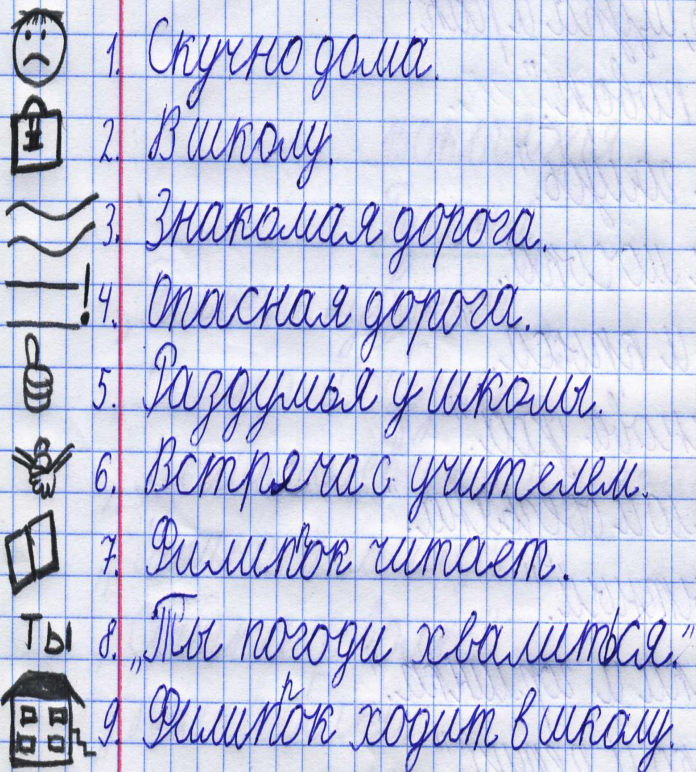 1. Скучно дома.
2. В школу.
3. Знакомая дорога.
4. Опасная дорога.
5. Раздумья у школы.
6. Встряча с учителем.
7. Филиппок читает.
ТЫ 8. „Ты погоди хвалиться.”
9. Филиппок ходит в школу.